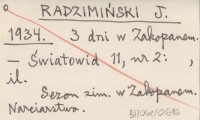 RADZIMIŃSKI J.
1934. 3 dni w Zakopanem.
— Światowid 11, nr 2: ,
il.
Sezon zim. w Zakopanem.
Narciarstwo.